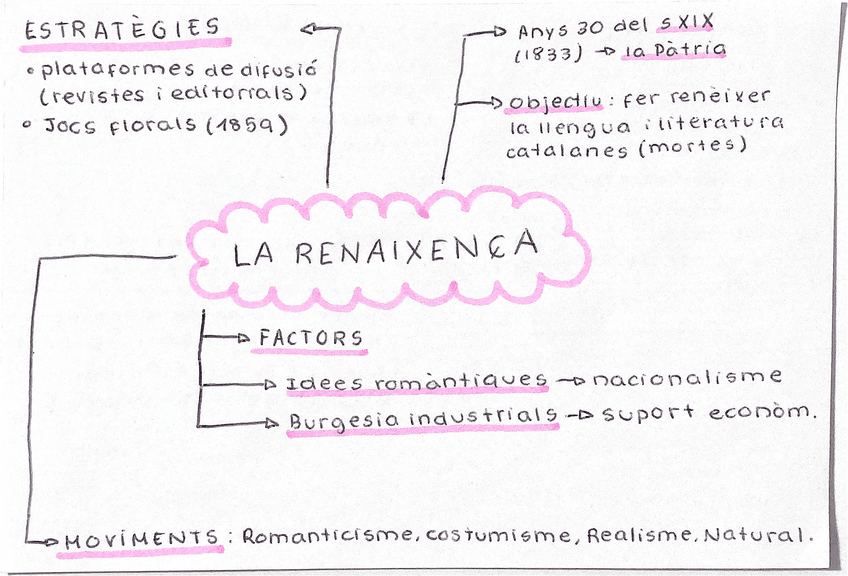 ESTRATÈGIES
• plataformes de difusió
(revistes i editorrials)
• Jocs florals (1859)
Anys 30 del s XIX
(1833) → la Pàtria
objectiu: fer renèixer
la llengua i literatura
catalanes (mortes)
LA RENAIXENÇA
FACTORS
Idees romàntiques → nacionalisme
Burgesia industrials → suport econòm.
MOVIMENTS: Romanticisme, costumisme, Realisme, Natural.